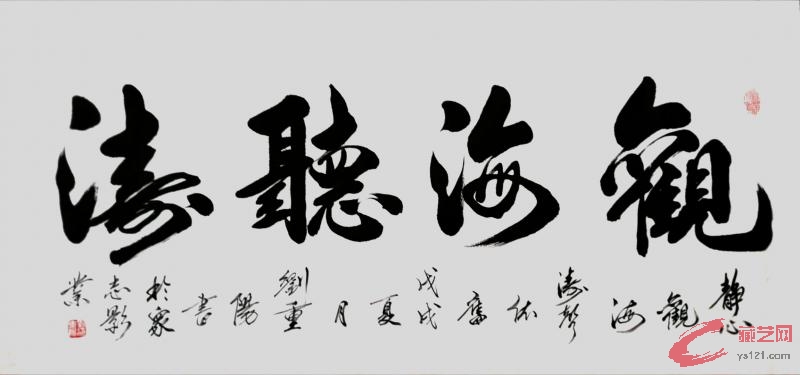 觀海聽濤
靜心觀海濤聲依舊戊戌夏月劉重陽書於衆志影業
藏艺网
ys121.com